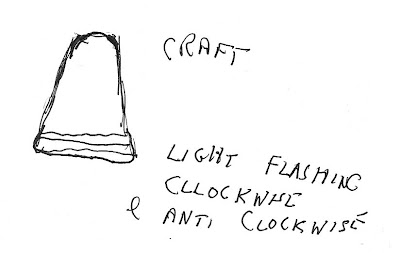 CRAFT
LIGHT FLASHING
CLLOCKWHE
e ANTI CLOCKWISE